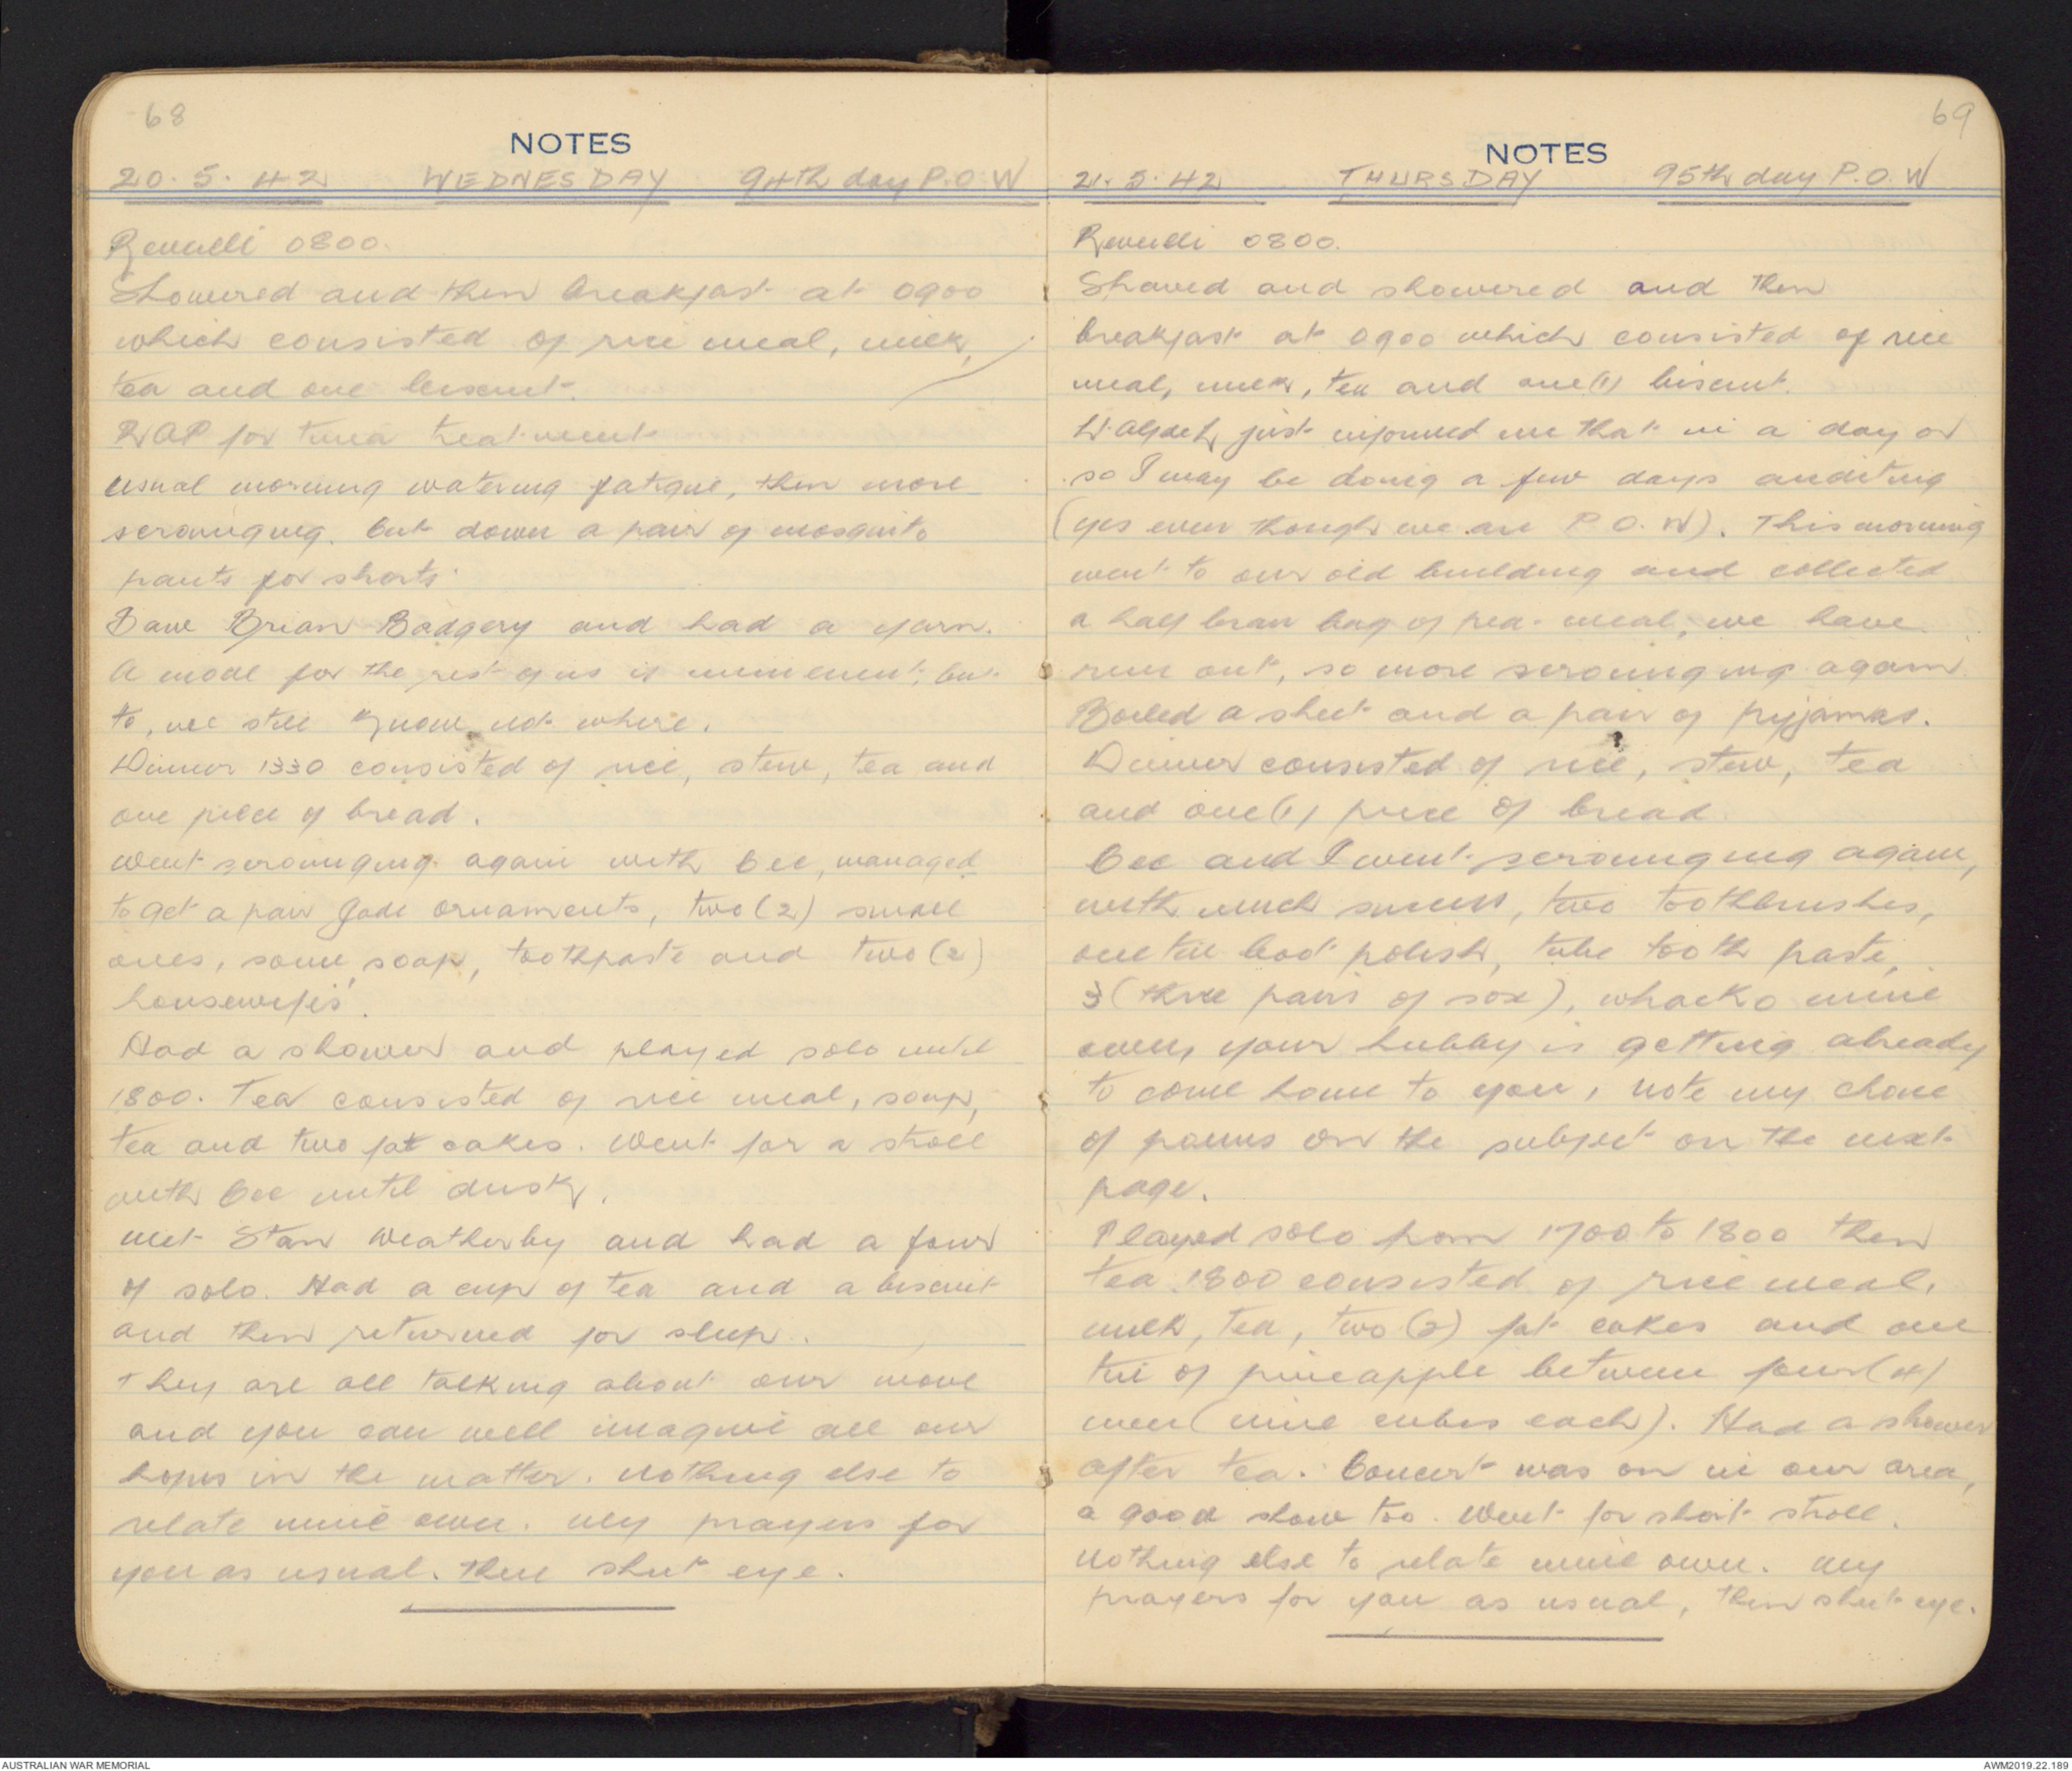 68
NOTES
20.5.42 WEDNESDAY 94th day P.O.W
Reveille 0800.
Showered and then breakfast at 0900
which consisted of rice meal, milk,
tea and one biscuit.
RAP for tinea treatment
usual morning watering fatigue, then more
scrounging. Cut down a pair of mosquito
pants for shorts.
Saw Brian Badgery and had a yarn.
A move for the rest of us is imminent, but
to, we still know not where.
Dinner 1330 consisted of rice, stew, tea and
one piece of bread.
Went scrounging again with Cec, managed
to get a pair Jade ornaments, two (2) small
ones, some soap, toothpaste and two (2)
housewifes'.
Had a shower and played solo until
1800. Tea consisted of rice meal, soup,
tea and two fat cakes. Went for a stroll
with Cec until dusk.
Met Stan Weatherby and had a four
of solo. Had a cup of tea and a biscuit
and then returned for sleep.
They are all talking about our move
and you can well imagine all our
hopes in the matter. Nothing else to
relate mine own. My prayers for
you as usual. then shut eye.
69
NOTES
21.5.42 THURSDAY 95th day P.O.W
Reveille 0800.
Shaved and showered and then
breakfast at 0900 which consisted of rice
meal, milk, tea and one (1) biscuit.
just informed me that in a day or
so I may be doing a few days auditing
(yes even though we are P.O.W). This morning
went to our old building and collected
a half bran bag of pea-meal, we have
run out, so more scrounging again.
Boiled a sheet and a pair of pyjamas.
Dinner consisted of rice, stew, tea
and one (1) piece of bread.
Cec and I went scrounging again,
with much success, two toothbrushes,
one tin boot polish, tube tooth paste,
3 (three pairs of sox), whacko mine
own, your hubby is getting already
to come home to you, note my choice
of poems on the subject on the next
page.
Played solo from 1700 to 1800 then
tea 1800 consisted of rice meal,
milk, tea, two (2) fat cakes and one
tin of pineapple between four (4)
men (nine cubes each). Had a shower
after tea. Concert was on in our area,
a good show too. Went for short stroll.
Nothing else to relate mine own. My
prayers for you as usual, then shut eye.
AUSTRALIAN WAR MEMORIAL
AWM2019.22.189